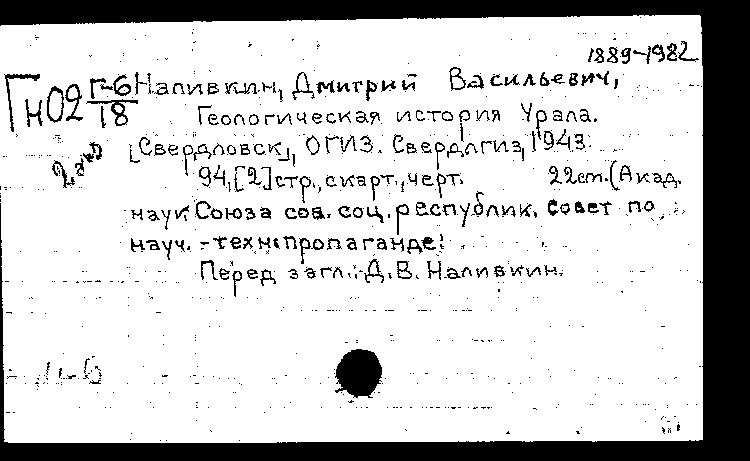 1889-1982
Гн02 Г-6/18 Наливкин, Дмитрий Васильевич,
Геологическая история Урала.
2 экз [Свердловск], ОГИЗ. Свердлгиз, 1943.
94,[2]стр., с карт., черт. 22 cm. (Акад.
наук Союза сов. соц. республик. Совет по
науч.-техн. пропаганде.
Перед загл.: Д. В. Наливкин.